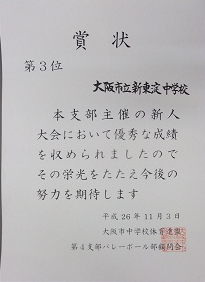 賞状
第3位
大阪市立新東淀中学校
本支部主催の新人
大会において優秀な成績
を収められましたので
その栄光をたたえ今後の
努力を期待します
平成26年11月3日
大阪市中学校体育連盟
第4支部バレーボール部顧問会